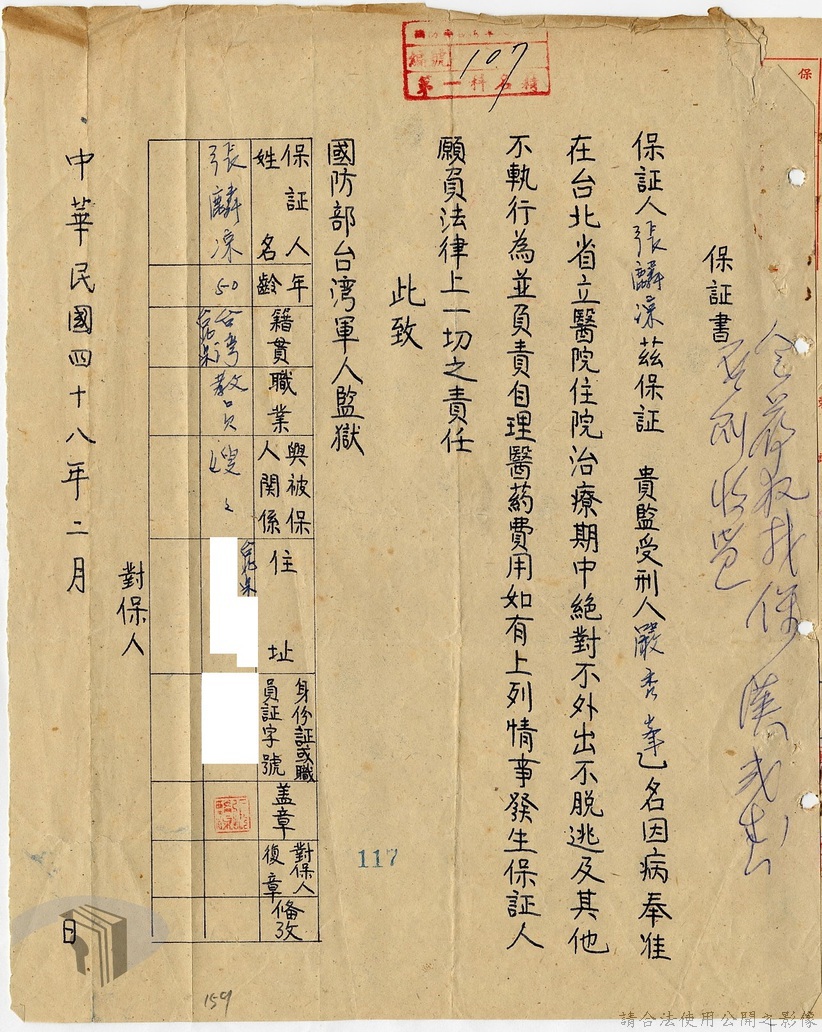 保証書
保証人張麟凍茲保証　貴監受刑人嚴秀峯乙名因病奉准
在台北省立醫院住院治療期中絕對不外出不脫逃及其他
不軌行為並負責自理醫葯費用如有上列情事發生保証人
願負法律上一切之責任
此致
國防部台湾軍人監獄
保証人姓名
年齡
籍貫
職業
與被保人關係
住址
身份証或職員証字號
盖章
對保人復章
俻攷
張麟凍
50
台灣
教員
嫂
對保人
中華民國四十八年二月　日
編號
107
第一科
117
159
保
請合法使用公開之影像